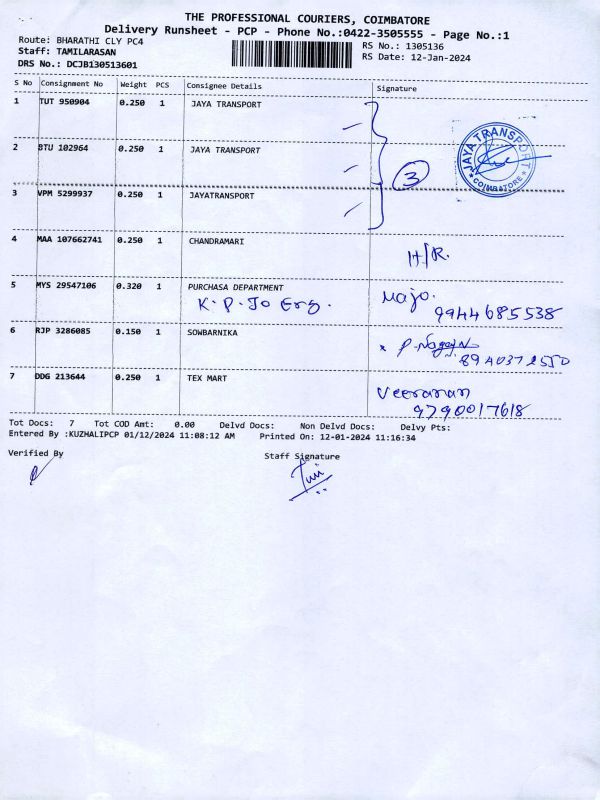 THE PROFESSIONAL COURIERS, COIMBATORE
Delivery Runsheet - PCP - Phone No.:0422-3505555 - Page No.:1
Route: BHARATHI CLY PC4
RS No.: 1305136
Staff: TAMILARASAN
RS Date: 12-Jan-2024
DRS No.: DCJB130513601
S No Consignment No Weight PCS Consignee Details Signature
1 TUT 950904 0.250 1 JAYA TRANSPORT
2 BTU 102964 0.250 1 JAYA TRANSPORT
3
JAYA TRANSPORT
COIMBATORE
3 VPM 5299937 0.250 1 JAYATRANSPORT
4 MAA 107662741 0.250 1 CHANDRAMARI
H/R.
5 MYS 29547106 0.320 1 PURCHASA DEPARTMENT
K. P. Jo Erg. Majo.
9944685538
6 RJP 3286085 0.150 1 SOWBARNIKA
7 DDG 213644 0.250 1 TEX MART
Veeranan
9790017618
Tot Docs: 7 Tot COD Amt: 0.00 Delvd Docs: Non Delvd Docs: Delvy Pts:
Entered By :KUZHALIPCP 01/12/2024 11:08:12 AM Printed On: 12-01-2024 11:16:34
Verified By Staff Signature